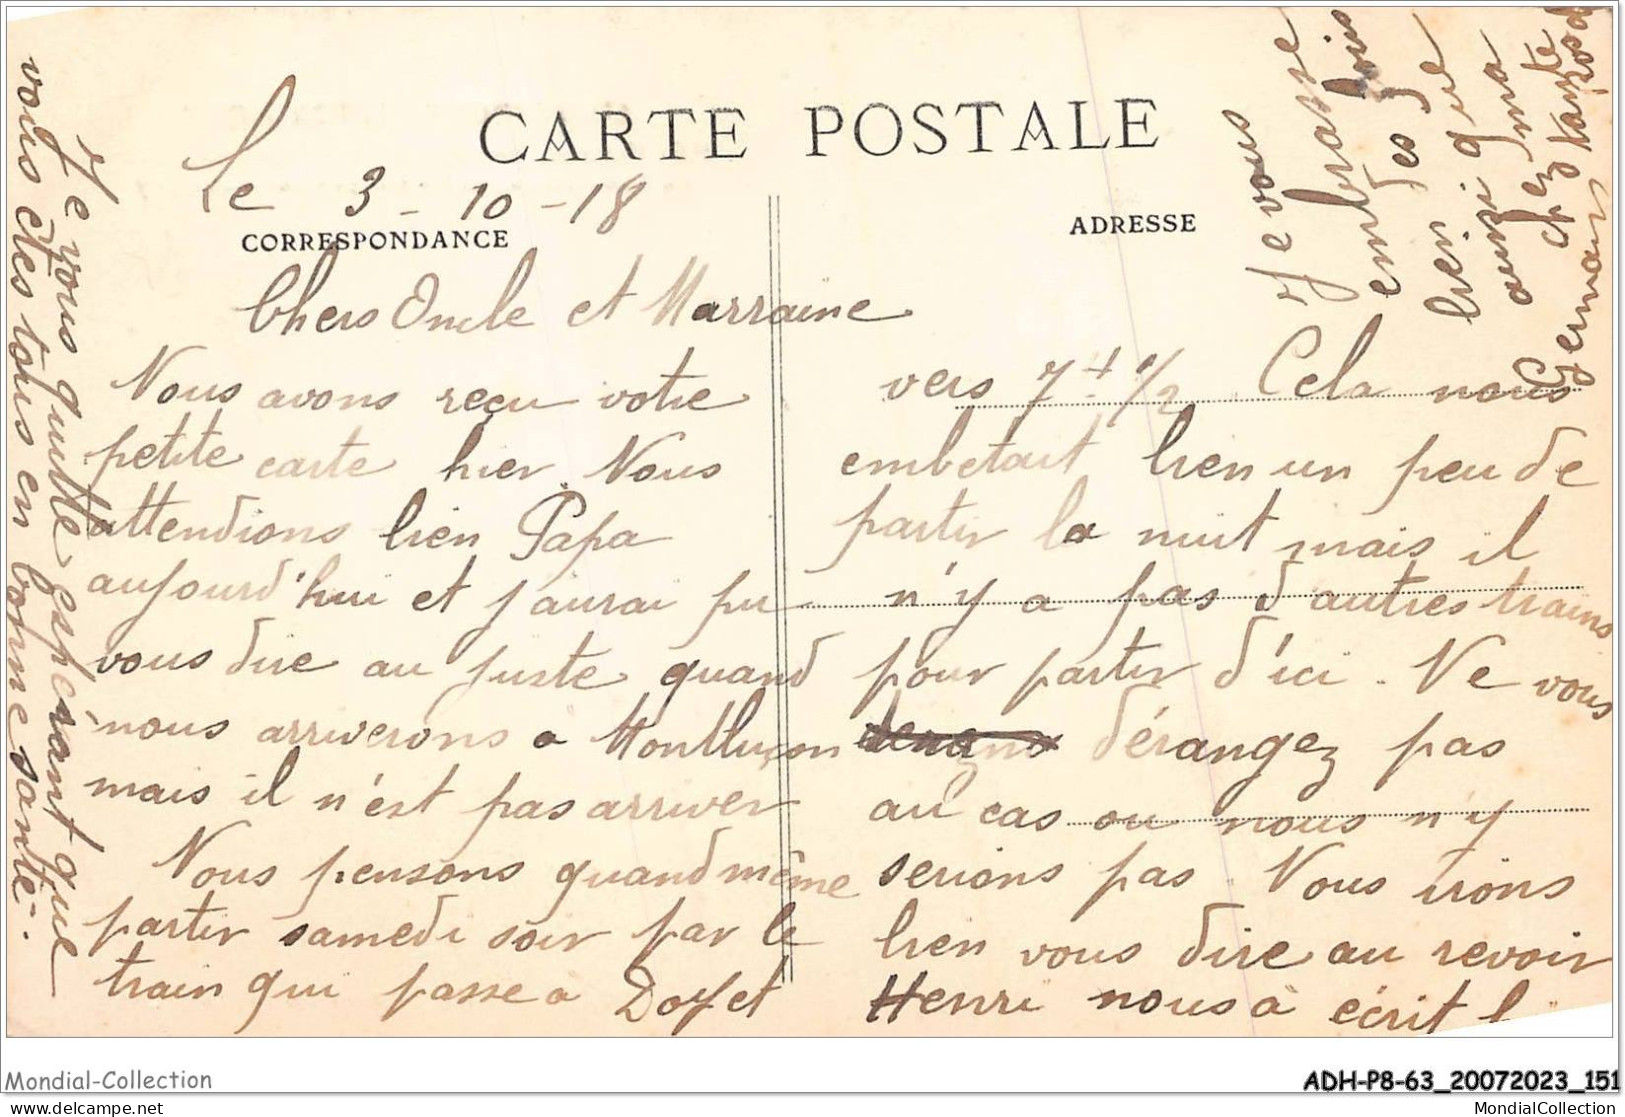 CARTE POSTALE
Le 3-10-18
CORRESPONDANCE
ADRESSE
Chers Oncle et Marraine
Nous avons reçu votre
petite carte hier. Nous
attendions bien Papa
aujourd'hui et j'aurai pu
vous dire au juste quand
nous arriverons a Montluçon
mais il n'est pas arriver
Nous pensons quand même
partir samedi soir par le
train qui passe a Doyet
vers 7h 1/2. Cela nous
embetait bien un peu de
partir la nuit mais il
n'y a pas d'autres trains
pour partir d'ici. Ne vous
dérangez pas
au cas ou nous n'y
serions pas. Nous irons
bien vous dire au revoir
Henri nous a écrit
Je vous quitte espérant que
vous êtes tous en bonne santé.
Je vous
embrasse
bien
ainsi que
chez
Germain
Mondial-Collection
ADH-P8-63_20072023_151
delcampe.net
MondialCollection